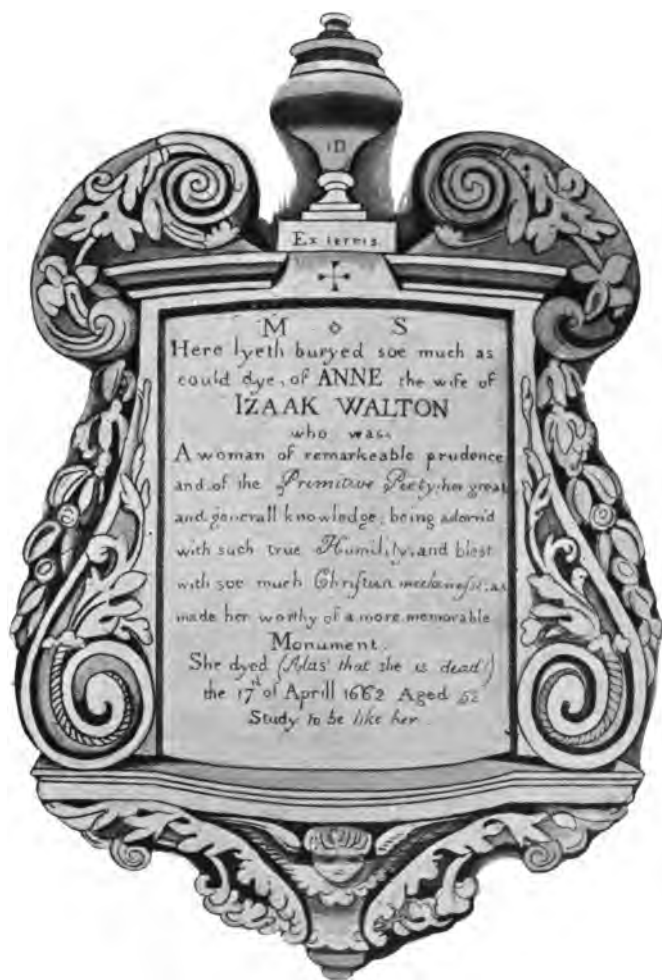 Ex terris
M S
Here lyeth buryed soe much as
could dye, of ANNE the wife of
IZAAK WALTON
who was,
A woman of remarkeable prudence
and of the Primitive Piety: her great
and generall knowledge; being adorn'd
with such true Humility, and blest
with soe much Christian meekenesse: as
made her worthy of a more memorable
Monument.
She dyed (Alas that she is dead!)
the 17th of Aprill 1662 Aged 52
Study to be like her.